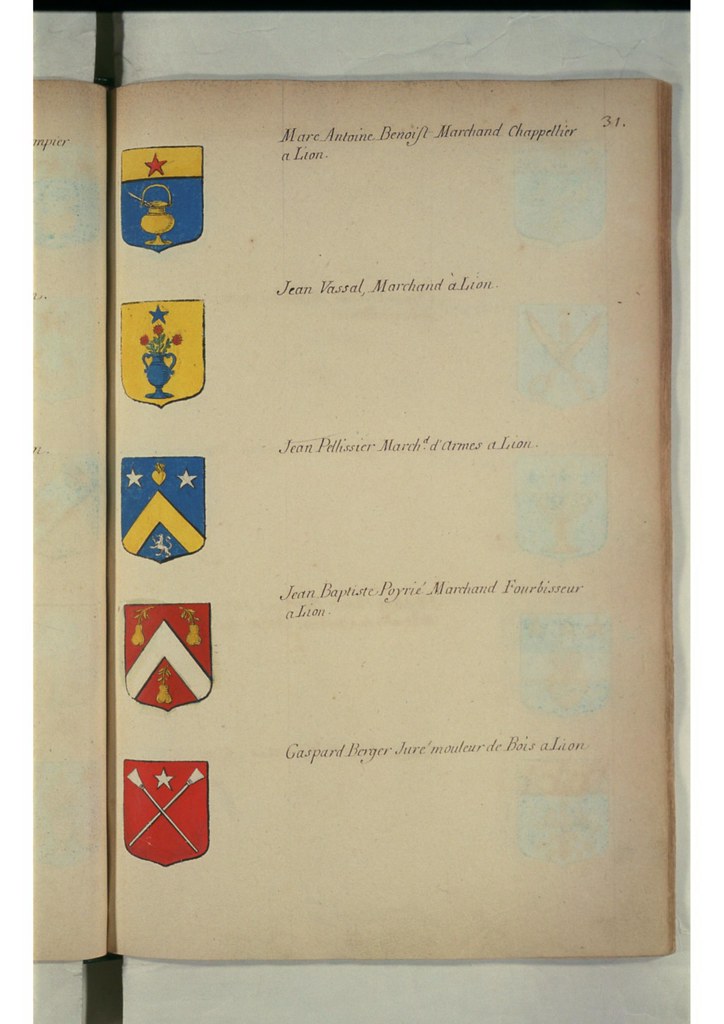 mpier
31.
Marc Antoine Benoist Marchand Chappellier
a Lion.
Jean Vassal, Marchand à Lion.
Jean Pellissier March.d d'Armes a Lion.
Jean Baptiste Poyrié Marchand Fourbisseur
a Lion.
Gaspard Berger Juré mouleur de Bois a Lion